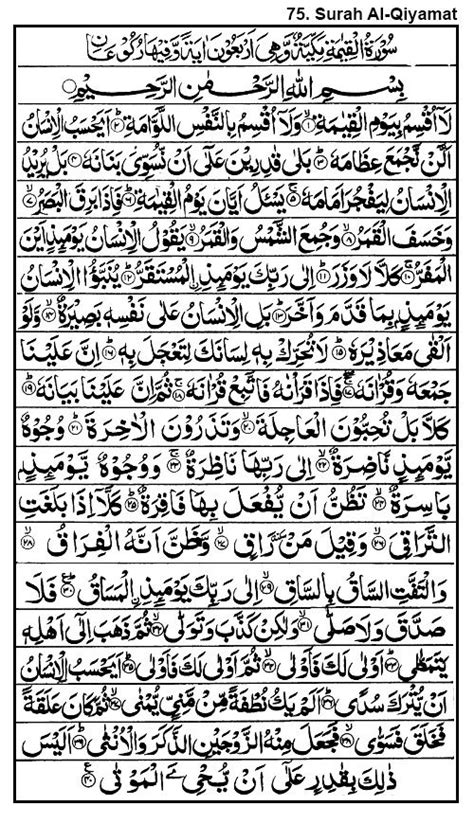 75. Surah Al-Qiyamat
سُوْرَةُ الْقِيٰمَةِ مَكِّيَّةٌ وَّهِيَ اَرْبَعُوْنَ اٰيَةً وَّفِيْهَا رُكُوْعَانِ
بِسْمِ اللّٰهِ الرَّحْمٰنِ الرَّحِيْمِ
لَاۤ اُقْسِمُ بِيَوْمِ الْقِيٰمَةِ ۝١ وَلَاۤ اُقْسِمُ بِالنَّفْسِ اللَّوَّامَةِ ۝٢ اَيَحْسَبُ الْاِنْسَانُ
اَلَّنْ نَّجْمَعَ عِظَامَهٗ ۝٣ بَلٰى قٰدِرِيْنَ عَلٰۤى اَنْ نُّسَوِّيَ بَنَانَهٗ ۝٤ بَلْ يُرِيْدُ
الْاِنْسَانُ لِيَفْجُرَ اَمَامَهٗ ۝٥ يَسْـَٔلُ اَيَّانَ يَوْمُ الْقِيٰمَةِ ۝٦ فَاِذَا بَرِقَ الْبَصَرُ ۝٧
وَخَسَفَ الْقَمَرُ ۝٨ وَجُمِعَ الشَّمْسُ وَالْقَمَرُ ۝٩ يَقُوْلُ الْاِنْسَانُ يَوْمَئِذٍ اَيْنَ
الْمَفَرُّ ۝١٠ كَلَّا لَا وَزَرَ ۝١١ اِلٰى رَبِّكَ يَوْمَئِذِ ِۨالْمُسْتَقَرُّ ۝١٢ يُنَبَّؤُا الْاِنْسَانُ
يَوْمَئِذٍۭ بِمَا قَدَّمَ وَاَخَّرَ ۝١٣ بَلِ الْاِنْسَانُ عَلٰى نَفْسِهٖ بَصِيْرَةٌ ۝١٤ وَّلَوْ
اَلْقٰى مَعَاذِيْرَهٗ ۝١٥ لَا تُحَرِّكْ بِهٖ لِسَانَكَ لِتَعْجَلَ بِهٖ ۝١٦ اِنَّ عَلَيْنَا
جَمْعَهٗ وَقُرْاٰنَهٗ ۝١٧ فَاِذَا قَرَاْنٰهُ فَاتَّبِعْ قُرْاٰنَهٗ ۝١٨ ثُمَّ اِنَّ عَلَيْنَا بَيَانَهٗ ۝١٩
كَلَّا بَلْ تُحِبُّوْنَ الْعَاجِلَةَ ۝٢٠ وَتَذَرُوْنَ الْاٰخِرَةَ ۝٢١ وُجُوْهٌ
يَّوْمَئِذٍ نَّاضِرَةٌ ۝٢٢ اِلٰى رَبِّهَا نَاظِرَةٌ ۝٢٣ وَوُجُوْهٌ يَّوْمَئِذٍۭ
بَاسِرَةٌ ۝٢٤ تَظُنُّ اَنْ يُّفْعَلَ بِهَا فَاقِرَةٌ ۝٢٥ كَلَّاۤ اِذَا بَلَغَتِ
التَّرَاقِيَ ۝٢٦ وَقِيْلَ مَنْ رَاقٍ ۝٢٧ وَّظَنَّ اَنَّهُ الْفِرَاقُ ۝٢٨
وَالْتَفَّتِ السَّاقُ بِالسَّاقِ ۝٢٩ اِلٰى رَبِّكَ يَوْمَئِذِ ِۨالْمَسَاقُ ۝٣٠ فَلَا
صَدَّقَ وَلَا صَلّٰى ۝٣١ وَلٰكِنْ كَذَّبَ وَتَوَلّٰى ۝٣٢ ثُمَّ ذَهَبَ اِلٰۤى اَهْلِهٖ
يَتَمَطّٰى ۝٣٣ اَوْلٰى لَكَ فَاَوْلٰى ۝٣٤ ثُمَّ اَوْلٰى لَكَ فَاَوْلٰى ۝٣٥ اَيَحْسَبُ الْاِنْسَانُ
اَنْ يُّتْرَكَ سُدًى ۝٣٦ اَلَمْ يَكُ نُطْفَةً مِّنْ مَّنِيٍّ يُّمْنٰى ۝٣٧ ثُمَّ كَانَ عَلَقَةً
فَخَلَقَ فَسَوّٰى ۝٣٨ فَجَعَلَ مِنْهُ الزَّوْجَيْنِ الذَّكَرَ وَالْاُنْثٰى ۝٣٩ اَلَيْسَ
ذٰلِكَ بِقٰدِرٍ عَلٰۤى اَنْ يُّحْيِ‍َۧ الْمَوْتٰى ۝٤٠